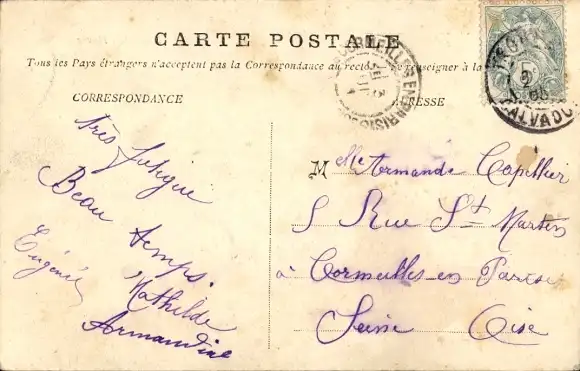 CARTE POSTALE
Tous les Pays étrangers n'acceptent pas la Correspondance au recto. Se renseigner à la
CORRESPONDANCE
ADRESSE
très fatiguée
Beau temps.
Eugénie
Mathilde
Armandine
Mlle Armande Capellier
5 Rue St Martin
à Cormeilles-en Parisis
Seine Oise
5c
CALVADOS